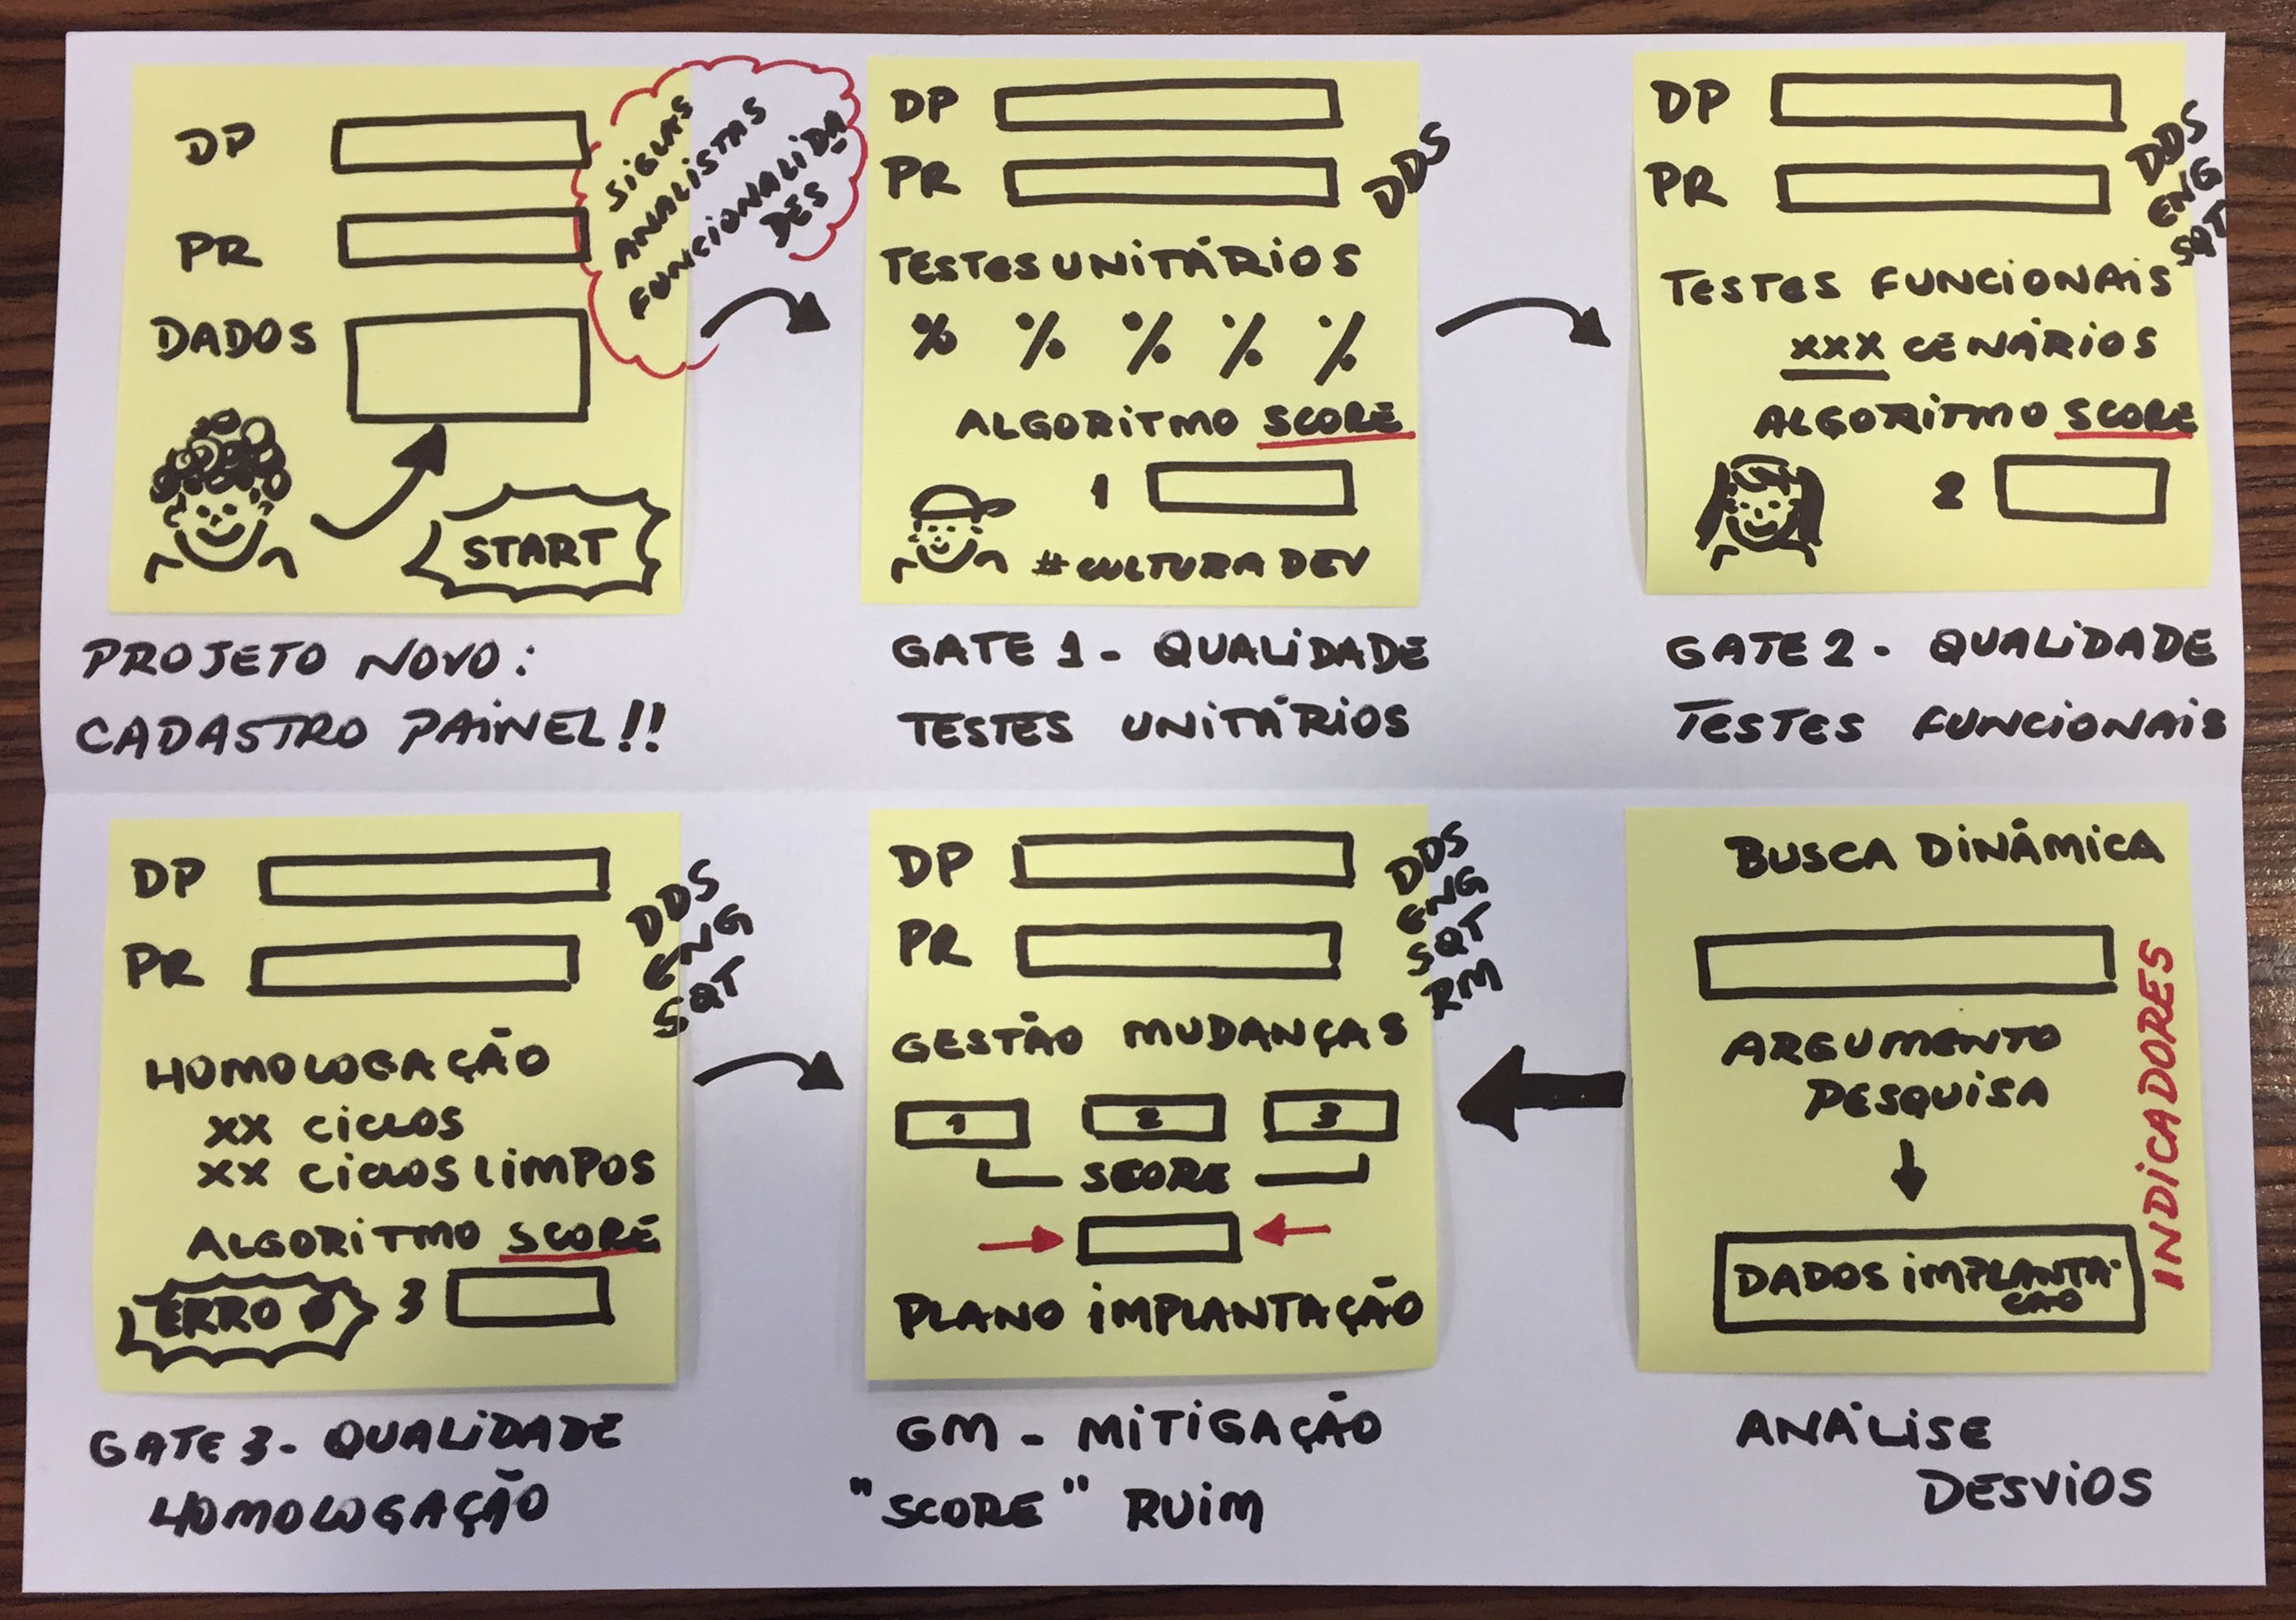 DP
PR
DADOS
SIGLAS
ANALISTAS
FUNCIONALIDA
DES
START
PROJETO NOVO:
CADASTRO PAINEL!!
DP
PR
DDS
TESTES UNITÁRIOS
% % % % %
ALGORITMO SCORE
1
#CULTURA DEV
GATE 1 - QUALIDADE
TESTES UNITÁRIOS
DP
PR
DDS
ENG
SQT
TESTES FUNCIONAIS
XXX CENÁRIOS
ALGORITMO SCORE
2
GATE 2 - QUALIDADE
TESTES FUNCIONAIS
DP
PR
DDS
ENG
SQT
HOMOLOGAÇÃO
XX CICLOS
XX CICLOS LIMPOS
ALGORITMO SCORE
ERRO Ø 3
GATE 3 - QUALIDADE
HOMOLOGAÇÃO
DP
PR
DDS
ENG
SQT
RM
GESTÃO MUDANÇAS
1 2 3
SCORE
PLANO IMPLANTAÇÃO
GM - MITIGAÇÃO
"SCORE" RUIM
BUSCA DINÂMICA
ARGUMENTO
PESQUISA
DADOS IMPLANTA-
ÇÃO
INDICADORES
ANÁLISE
DESVIOS